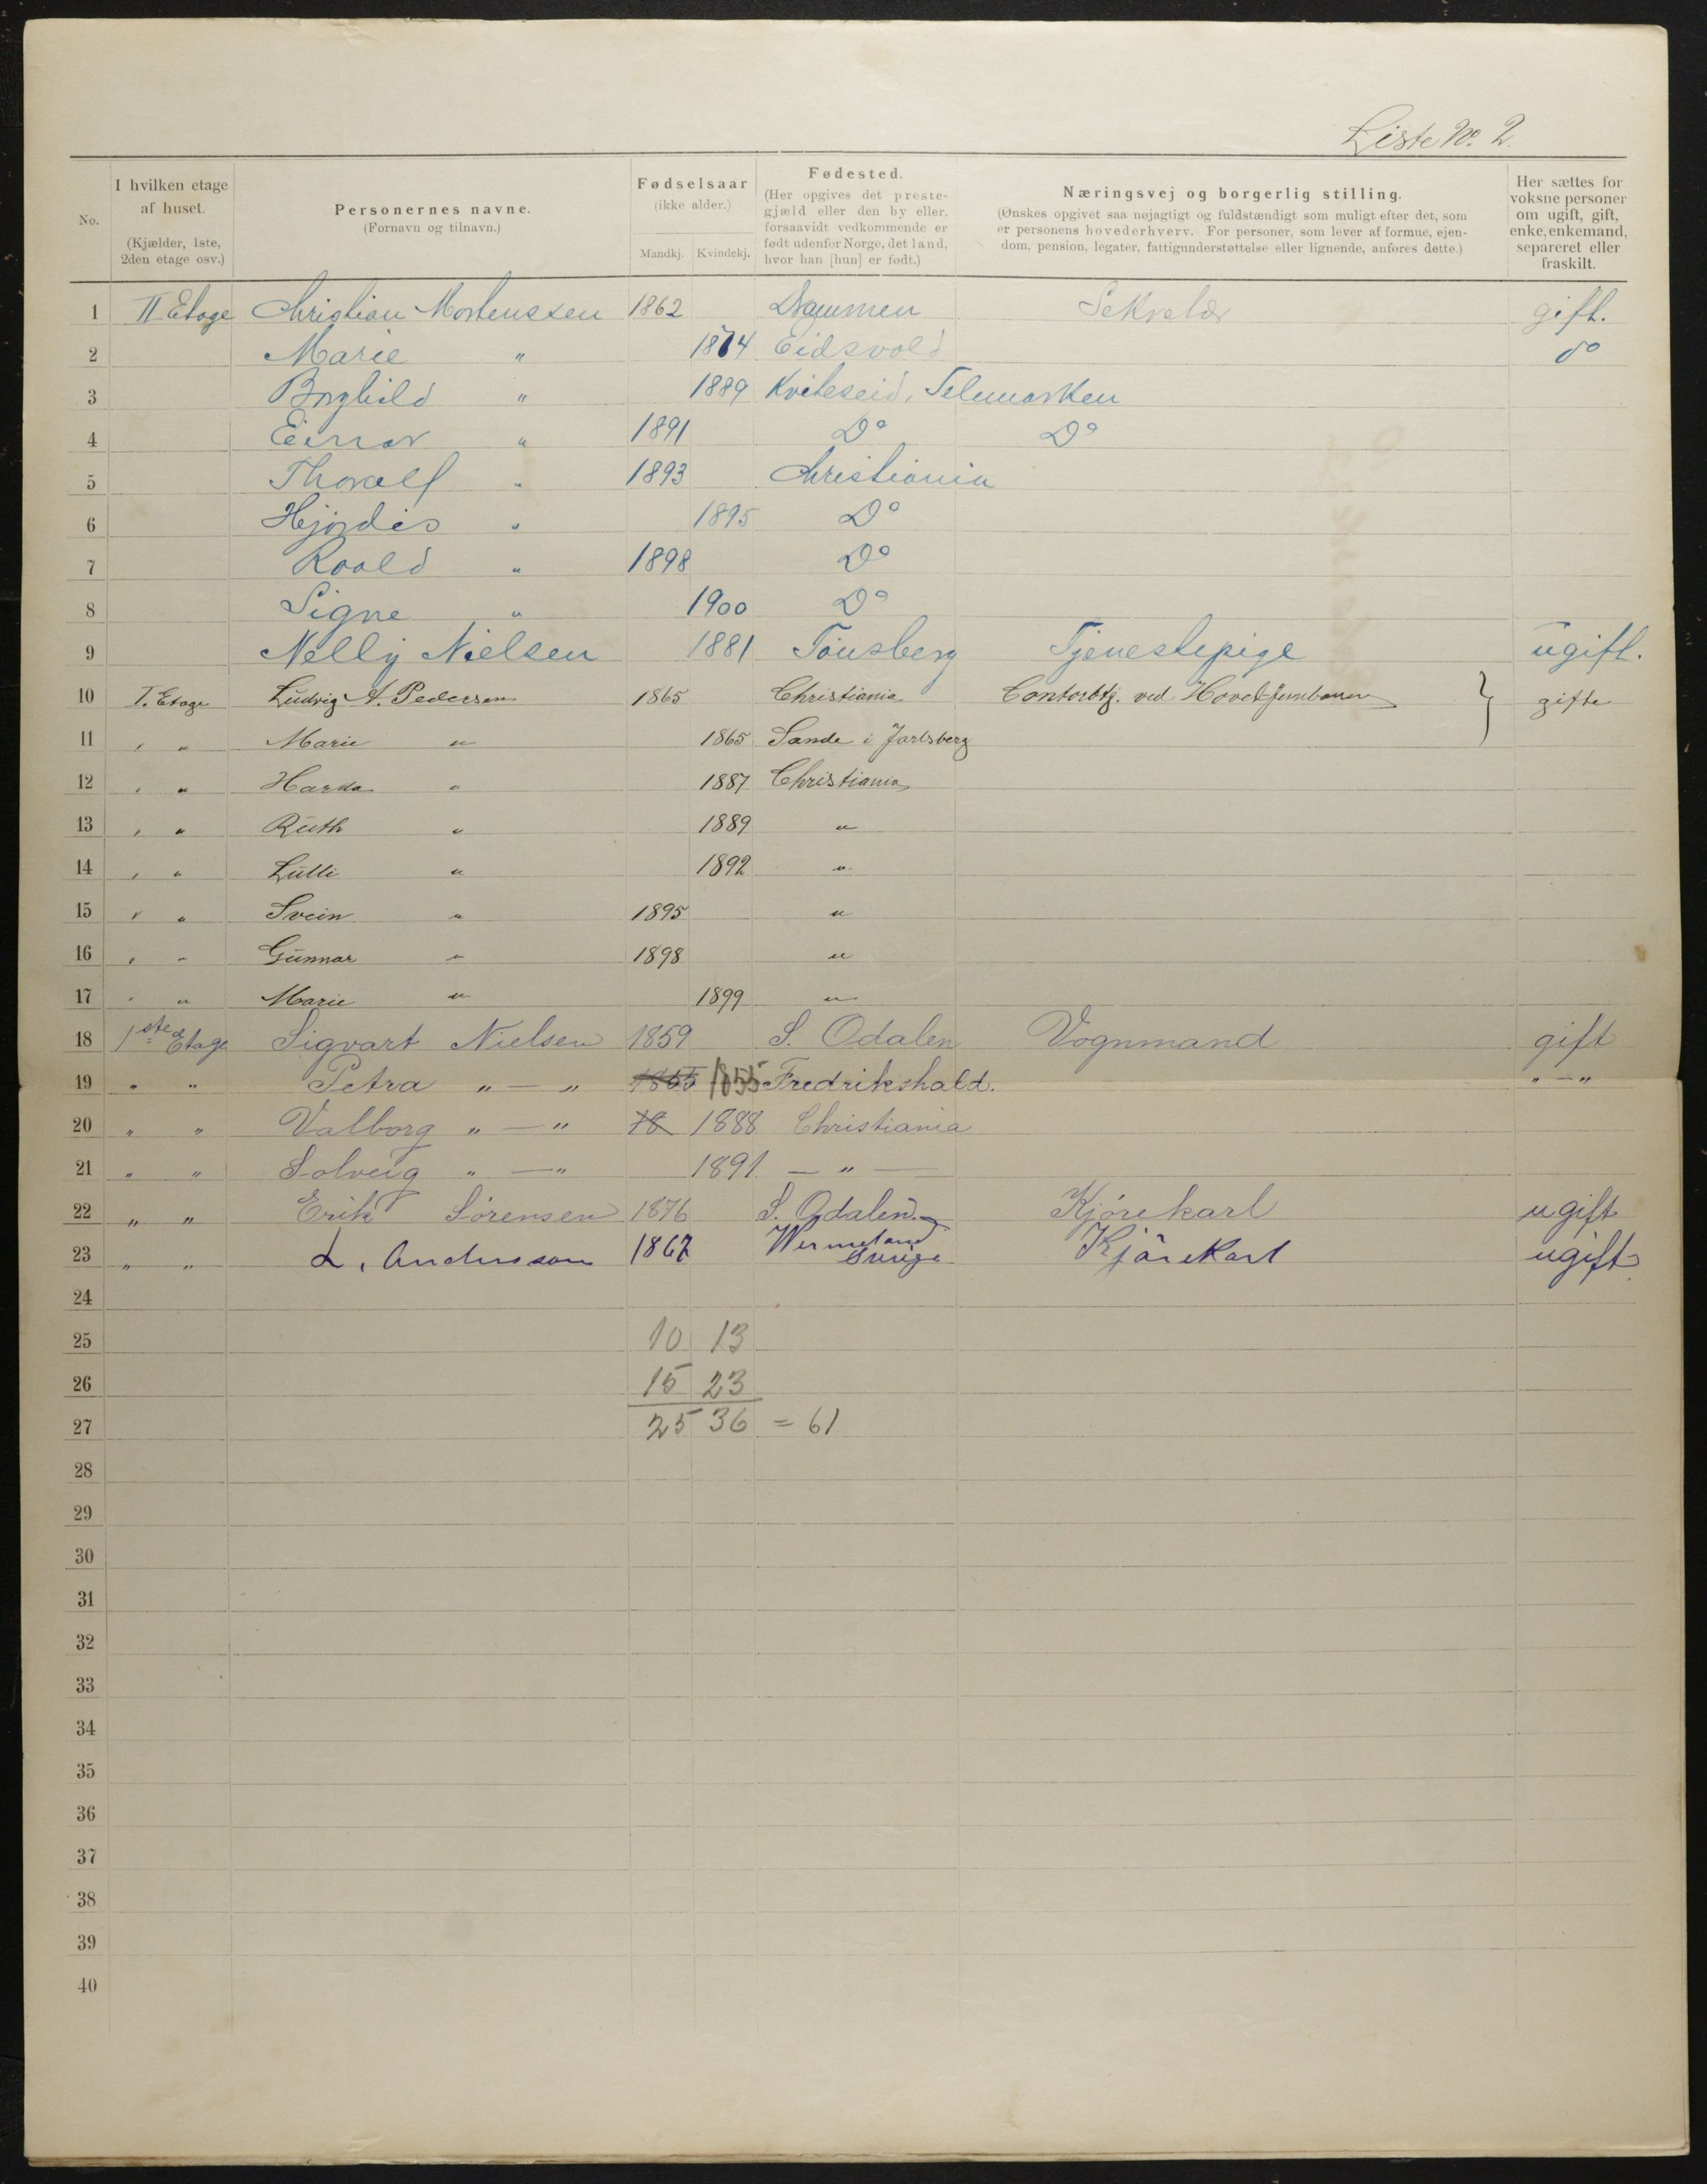 Liste No. 2.
No.
I hvilken etage af huset. (Kjælder, 1ste, 2den etage osv.)
Personernes navne. (Fornavn og tilnavn.)
Fødselsaar (ikke alder.) Mandkj. Kvindekj.
Fødested. (Her opgives det prestegjæld eller den by eller, forsaavidt vedkommende er født udenfor Norge, det land, hvor han [hun] er født.)
Næringsvej og borgerlig stilling. (Ønskes opgivet saa nøjagtigt og fuldstændigt som muligt efter det, som er personens hovederhverv. For personer, som lever af formue, ejendom, pension, legater, fattigunderstøttelse eller lignende, anføres dette.)
Her sættes for voksne personer om ugift, gift, enke, enkemand, separeret eller fraskilt.
1 II Etage Christian Mortenssen 1862 Drammen Sekretær gift.
2 Marie " 1864 Eidsvold do
3 Borghild " 1889 Kviteseid, Telemarken
4 Einar " 1891 Do Do
5 Thoralf " 1893 Christiania
6 Hjørdis " 1895 Do
7 Roald " 1898 Do
8 Signe " 1900 Do
9 Nelly Nielsen 1881 Tønsberg Tjenestepige ugift.
10 I. Etage Ludvig A. Pedersen 1865 Christiania Contorbtj. ved Hovedjernbanen } gifte
11 " " Marie " 1865 Sande i Jarlsberg
12 " " " 1887 Christiania
13 " " Ruth " 1889 "
14 " " Lulli " 1892 "
15 " " Svein " 1895 "
16 " " Gunnar " 1898 "
17 " " Marie " 1899 "
18 1ste Etage Sigvart Nielsen 1859 S. Odalen Vognmand gift
19 " " Petra " — " 1855 1855 Fredrikshald. " — "
20 " " Valborg " — " 18 1888 Christiania
21 " " Solveig " — " 1891 — " —
22 " " Erik Sørensen 1876 S. Odalen Kjørekarl ugift
23 " " L. Andersson 1867 Wermeland Sverige Kjørekarl ugift
24
25 10 13
26 15 23
27 25 36 = 61
28
29
30
31
32
33
34
35
36
37
38
39
40